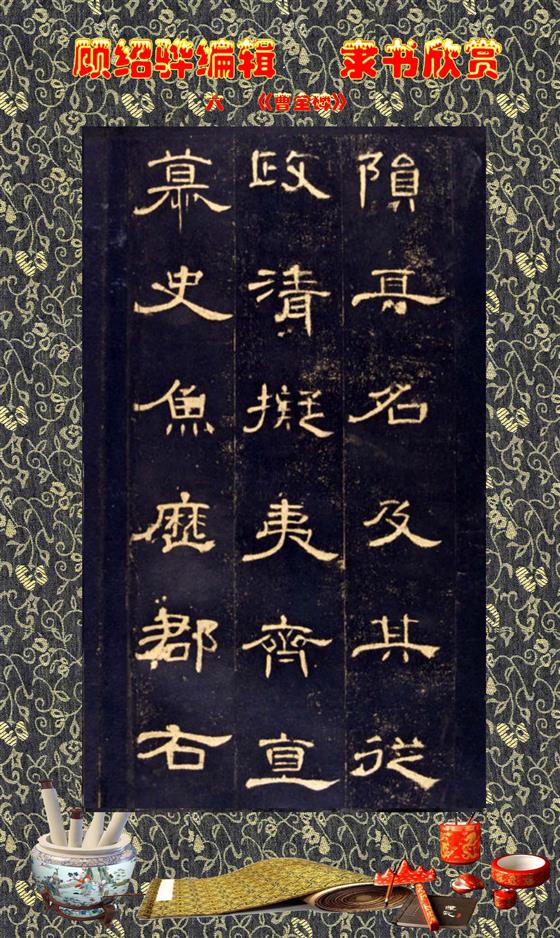 顾绍骅编辑 隶书欣赏
六 《曹全碑》
隕其名及其從
政清擬夷齊直
慕史魚歷郡右